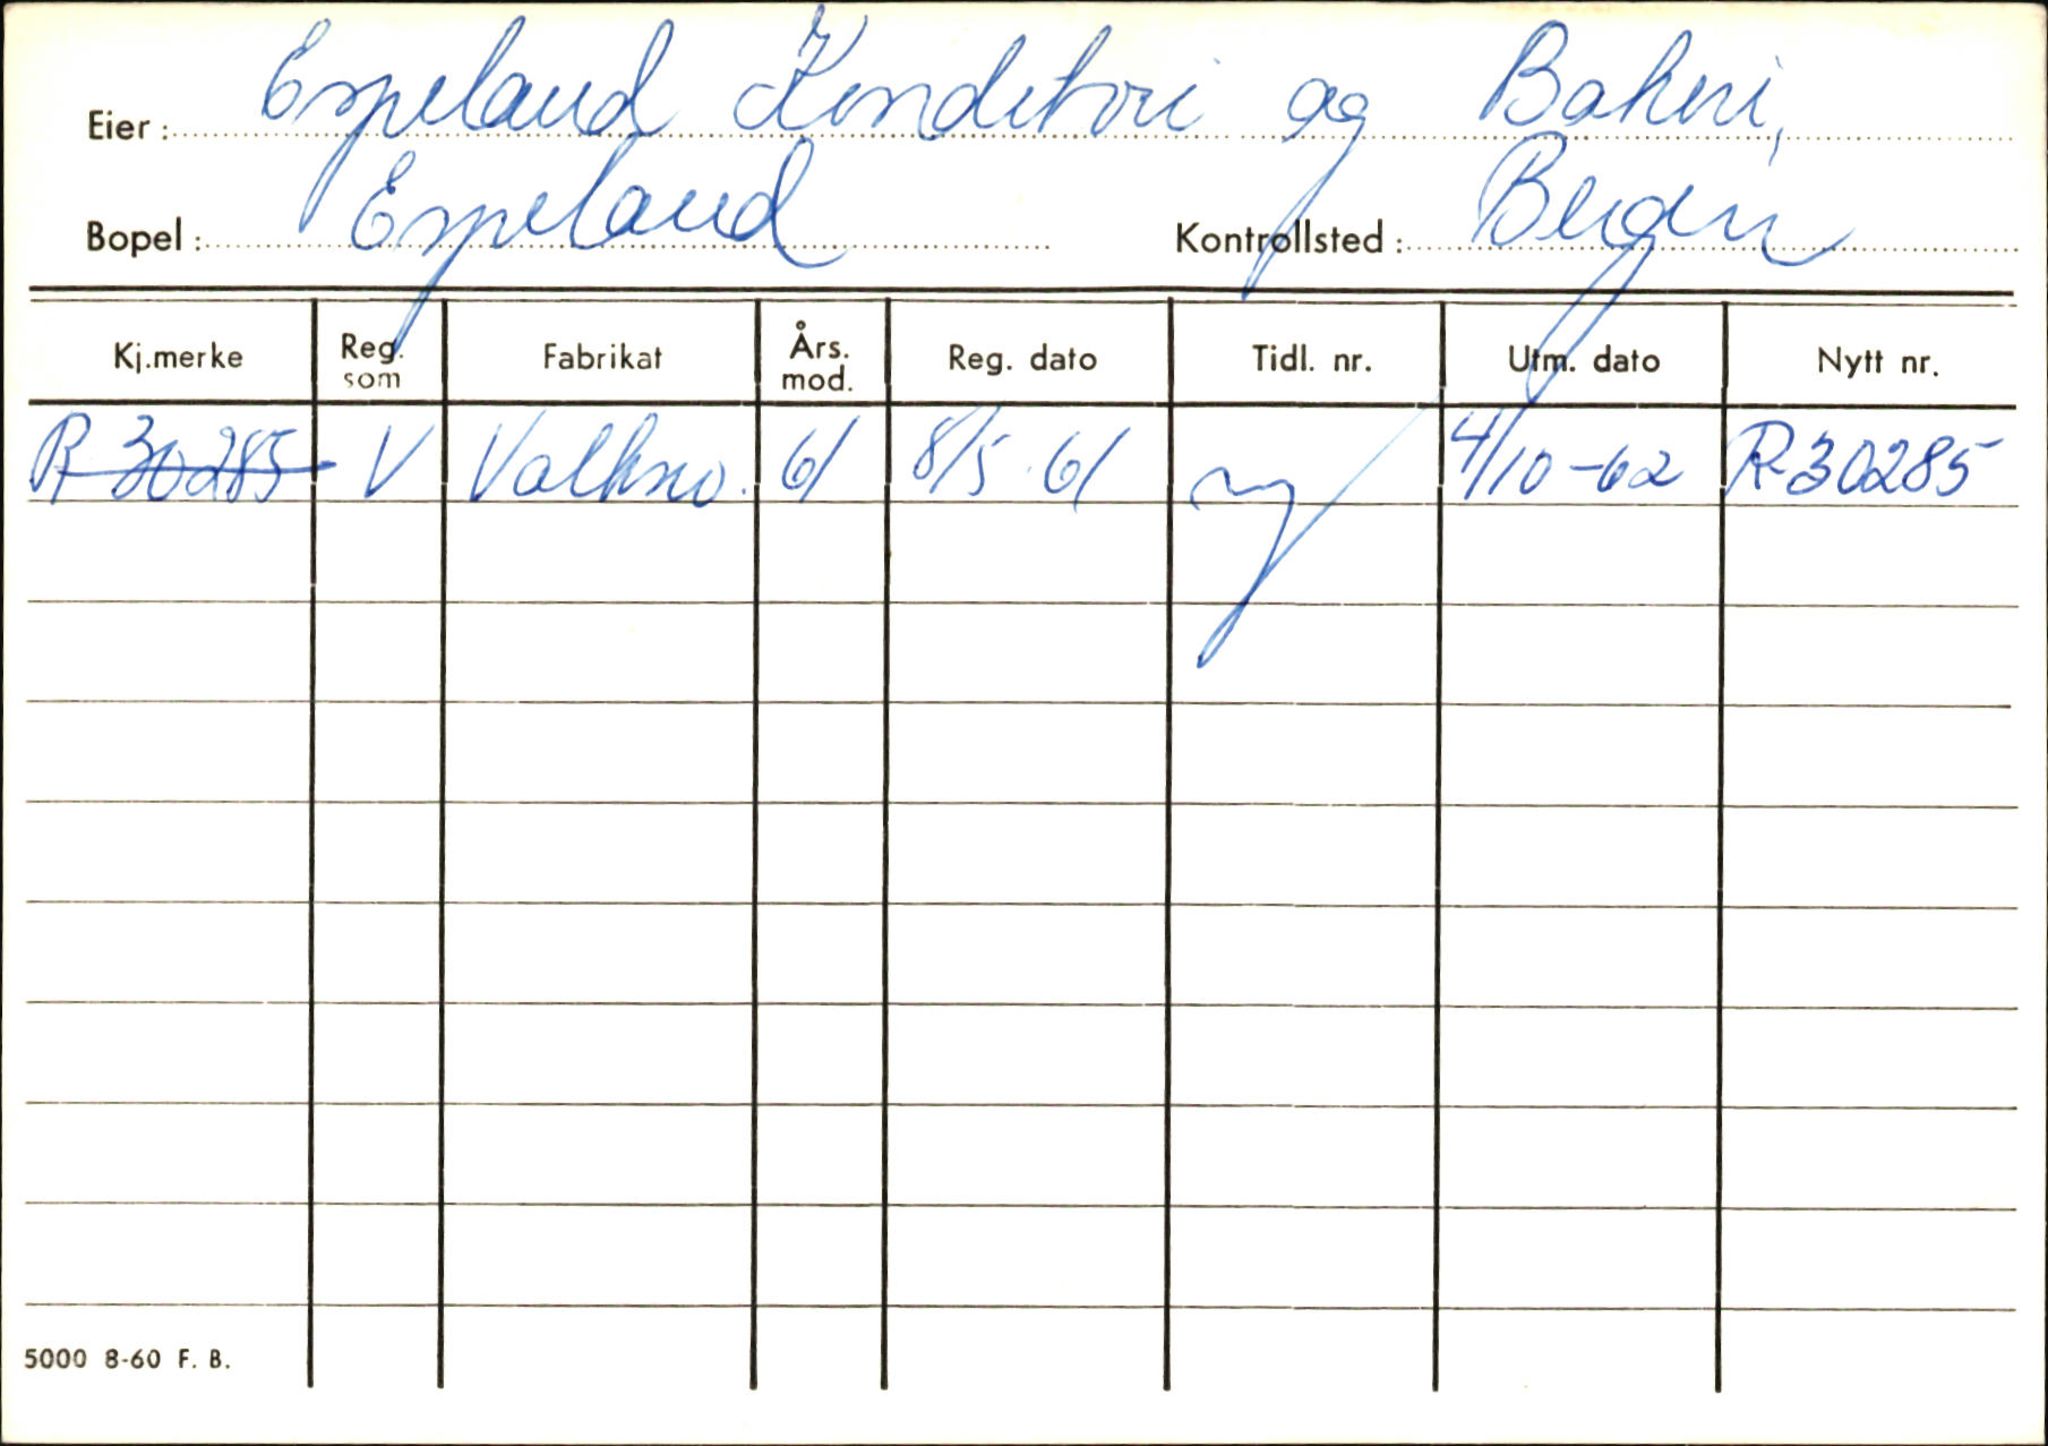 Eier: Espeland Konditori og Bakeri,
Bopel: Espeland Kontrollsted: Bergen
Kj.merke Reg. som Fabrikat Års. mod. Reg. dato Tidl. nr. Utm. dato Nytt nr.
R-30285 V Volksv. 61 8/5-61 ny 4/10-62 R-30285
5000 8-60 F. B.